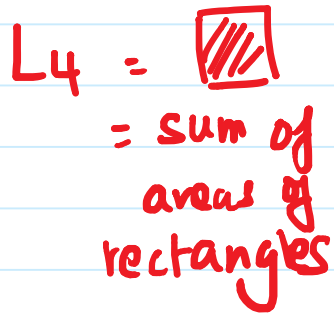 L4 =
= sum of
areas of
rectangles